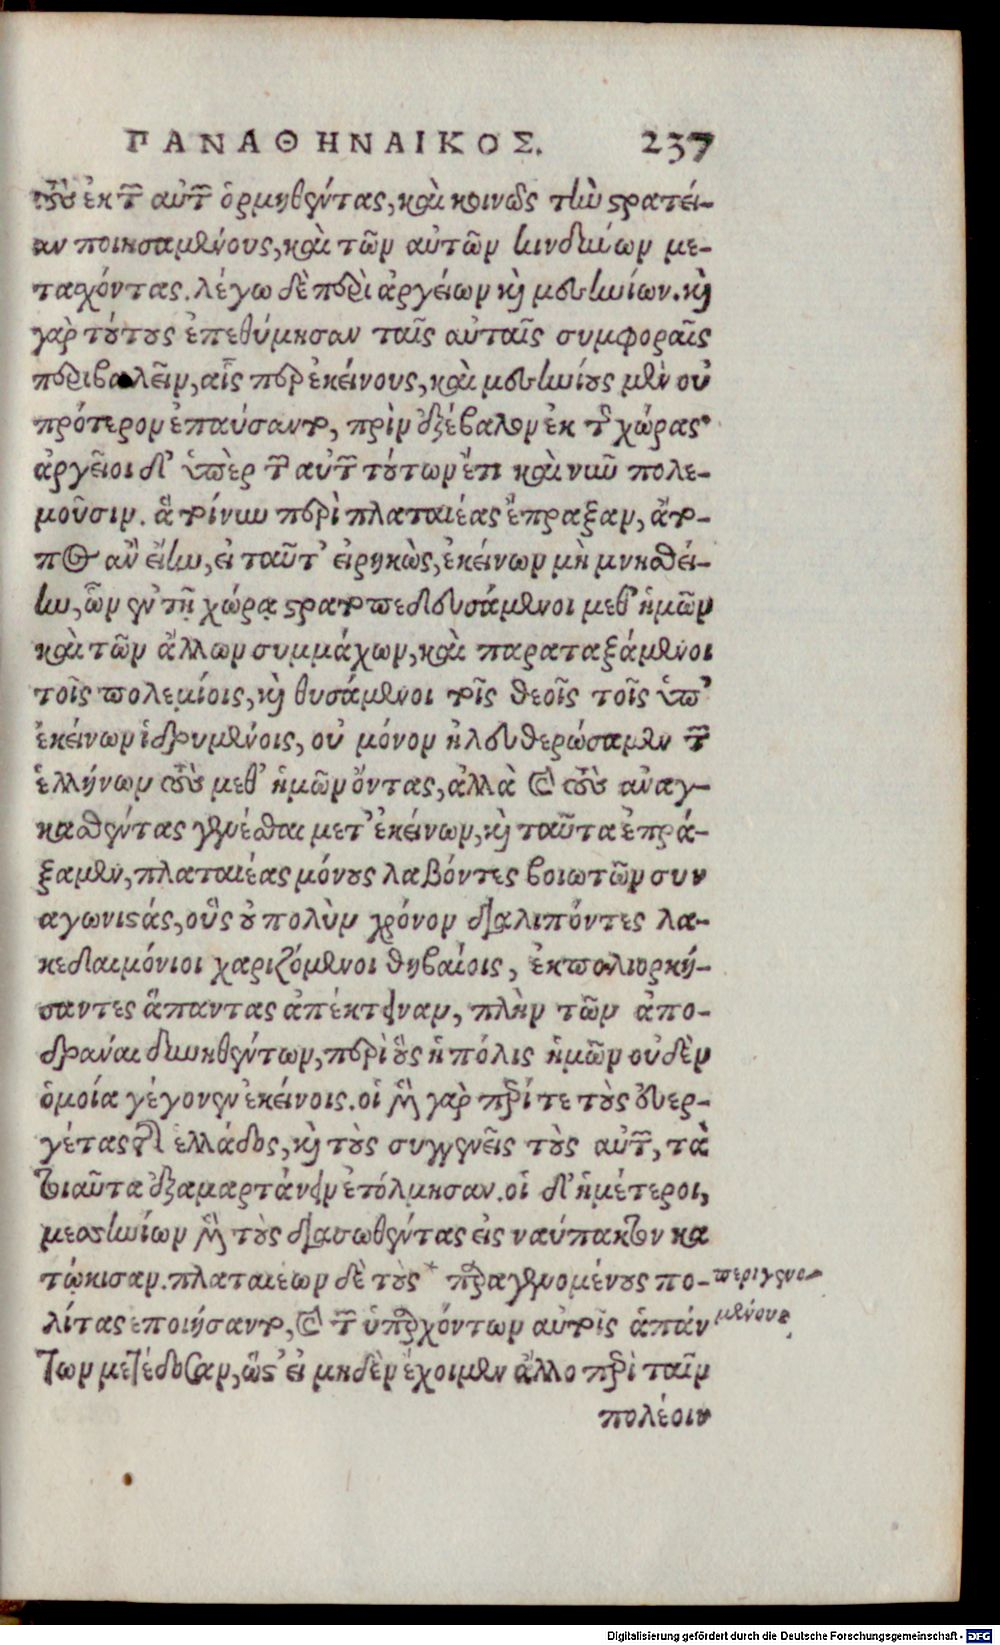 ΠΑΝΑΘΗΝΑΙΚΟΣ. 237
τοὺς ἐκ τῶν αὐτῶν ὁρμηθέντας, καὶ κοινῶς τὴν στρατεί-
αν ποιησαμένους, καὶ τῶν αὐτῶν κινδύνων με-
τασχόντας. λέγω δὲ περὶ ἀργείων κὶ μεσσηνίων. κὶ
γὰρ τούτους ἐπεθύμησαν ταῖς αὐταῖς συμφοραῖς
περιβαλεῖν, αἷς περ ἐκείνους, καὶ μεσσηνίους μὲν οὐ
πρότερον ἐπαύσαντο, πρὶν ἐξέβαλον ἐκ τῆς χώρας·
ἀργείοι δ' ὑπὲρ τῶν αὐτῶν τούτων ἔτι καὶ νῦν πολε-
μοῦσιν. ἃ τοίνυν περὶ πλαταιέας ἔπραξαν, ἄτο-
πος ἂν εἴην, εἰ ταῦτ' εἰρηκὼς, ἐκείνων μὴ μνησθεί-
ην, ὧν ἐν τῇ χώρᾳ στρατοπεδευσάμενοι μεθ' ἡμῶν
καὶ τῶν ἄλλων συμμάχων, καὶ παραταξάμενοι
τοῖς πολεμίοις, κὶ θυσάμενοι τοῖς θεοῖς τοῖς ὑπ'
ἐκείνων ἱδρυμένοις, οὐ μόνον ἠλευθερώσαμεν τῶν
ἑλλήνων τοὺς μεθ' ἡμῶν ὄντας, ἀλλὰ καὶ τοὺς αναγ-
κασθέντας γενέσθαι μετ' ἐκείνων, κὶ ταῦτα ἐπρά-
ξαμεν, πλαταιέας μόνους λαβόντες βοιωτῶν συν
αγωνιστάς, οὓς οὐ πολὺν χρόνον διαλιπόντες λα-
κεδαιμόνιοι χαριζόμενοι θηβαίοις, ἐκπολιορκή-
σαντες ἅπαντας ἀπέκτειναν, πλὴν τῶν ἀπο-
δρᾶναι δυνηθέντων, περὶ οὓς ἡ πόλις ἡμῶν οὐδὲν
ὁμοία γέγονεν ἐκείνοις. οἱ μὲν γὰρ περί τε τοὺς εὐερ-
γέτας τῆς ἑλλάδος, κὶ τοὺς συγγενεῖς τοὺς αὐτῶν, τὰ
τοιαῦτα ἐξαμαρτάνειν ἐτόλμησαν. οἱ δ' ἡμέτεροι,
μεσσηνίων μὲν τοὺς διασωθέντας εἰς ναύπακτον κα
τῴκισαν. πλαταιέων δὲ τοὺς * παραγενομένους πο-
λίτας ἐποιήσαντο, καὶ τῶν ὑπαρχόντων αὐτοῖς ἁπάν
των μετέδοσαν, ὥστ' εἰ μηδὲν ἔχοιμεν ἄλλο περὶ ταῖν
πολέοιν
περιγενο-
μένους
Digitalisierung gefördert durch die Deutsche Forschungsgemeinschaft - DFG